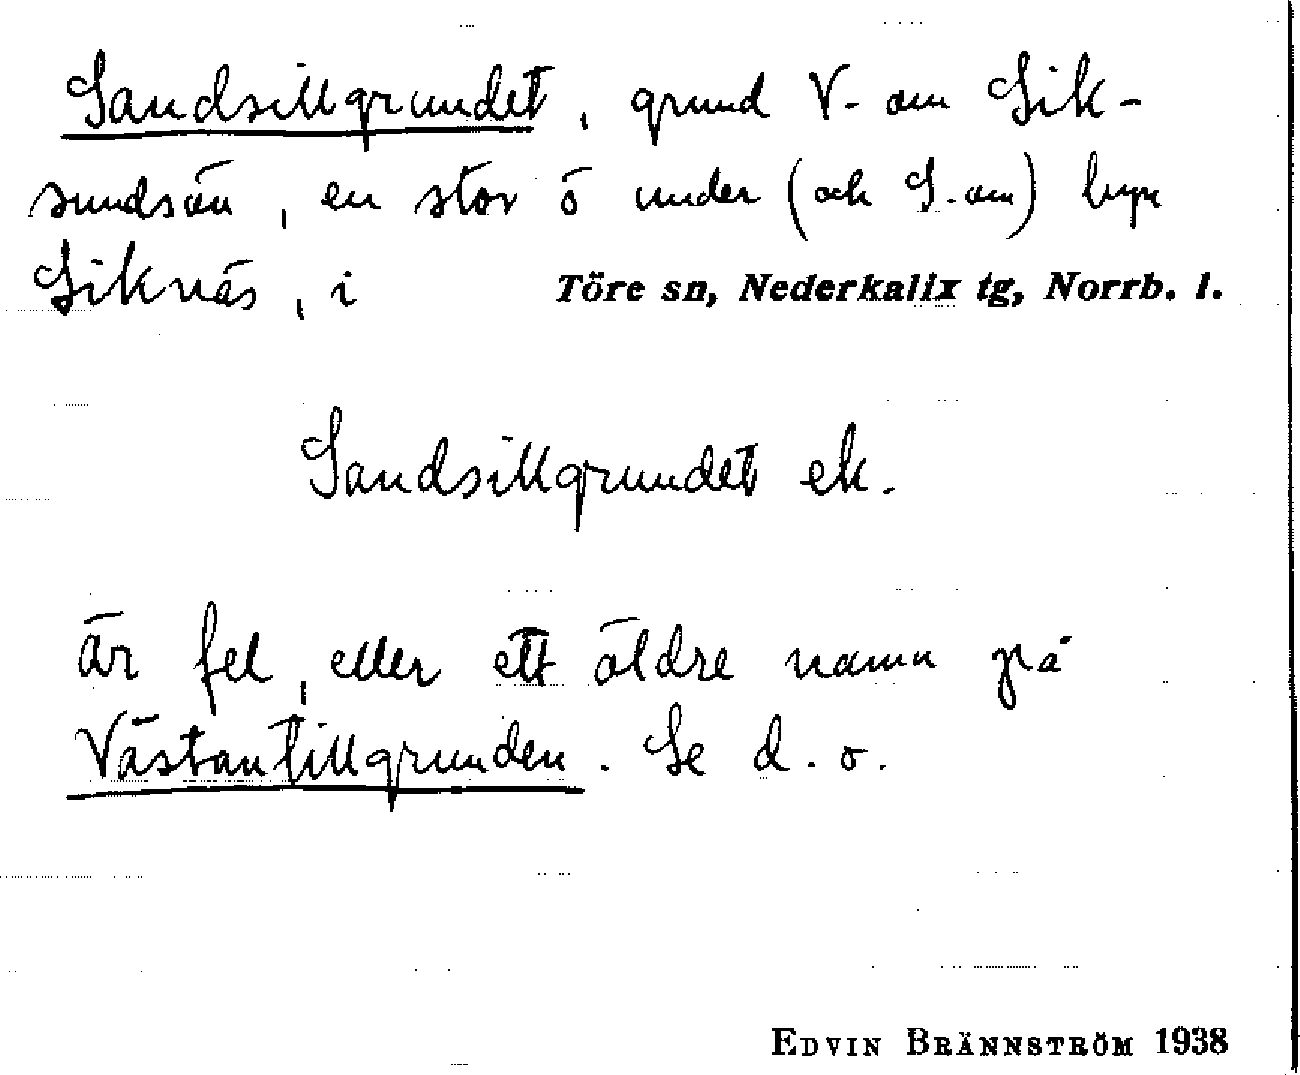 Sandsillgrundet, grund V-om Sik-
sundsön, en stor ö under (och S.om) byn
Siknäs, i Töre sn, Nederkalix tg, Norrb. l.
Sandsillgrundet ek.
är fel, eller ett äldre namn på
Västantillgrunden. Se d. o.
EDVIN BRÄNNSTRÖM 1938